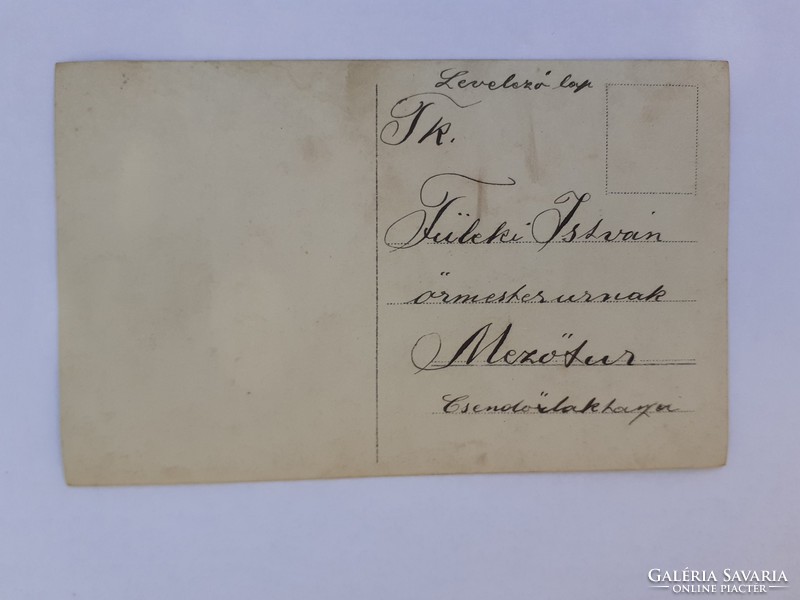 Levelező lap
Tk.
Füleki István
őrmester urnak
Mezőtur
Csendőrlaktanya
GALÉRIA SAVARIA
ONLINE PIACTÉR